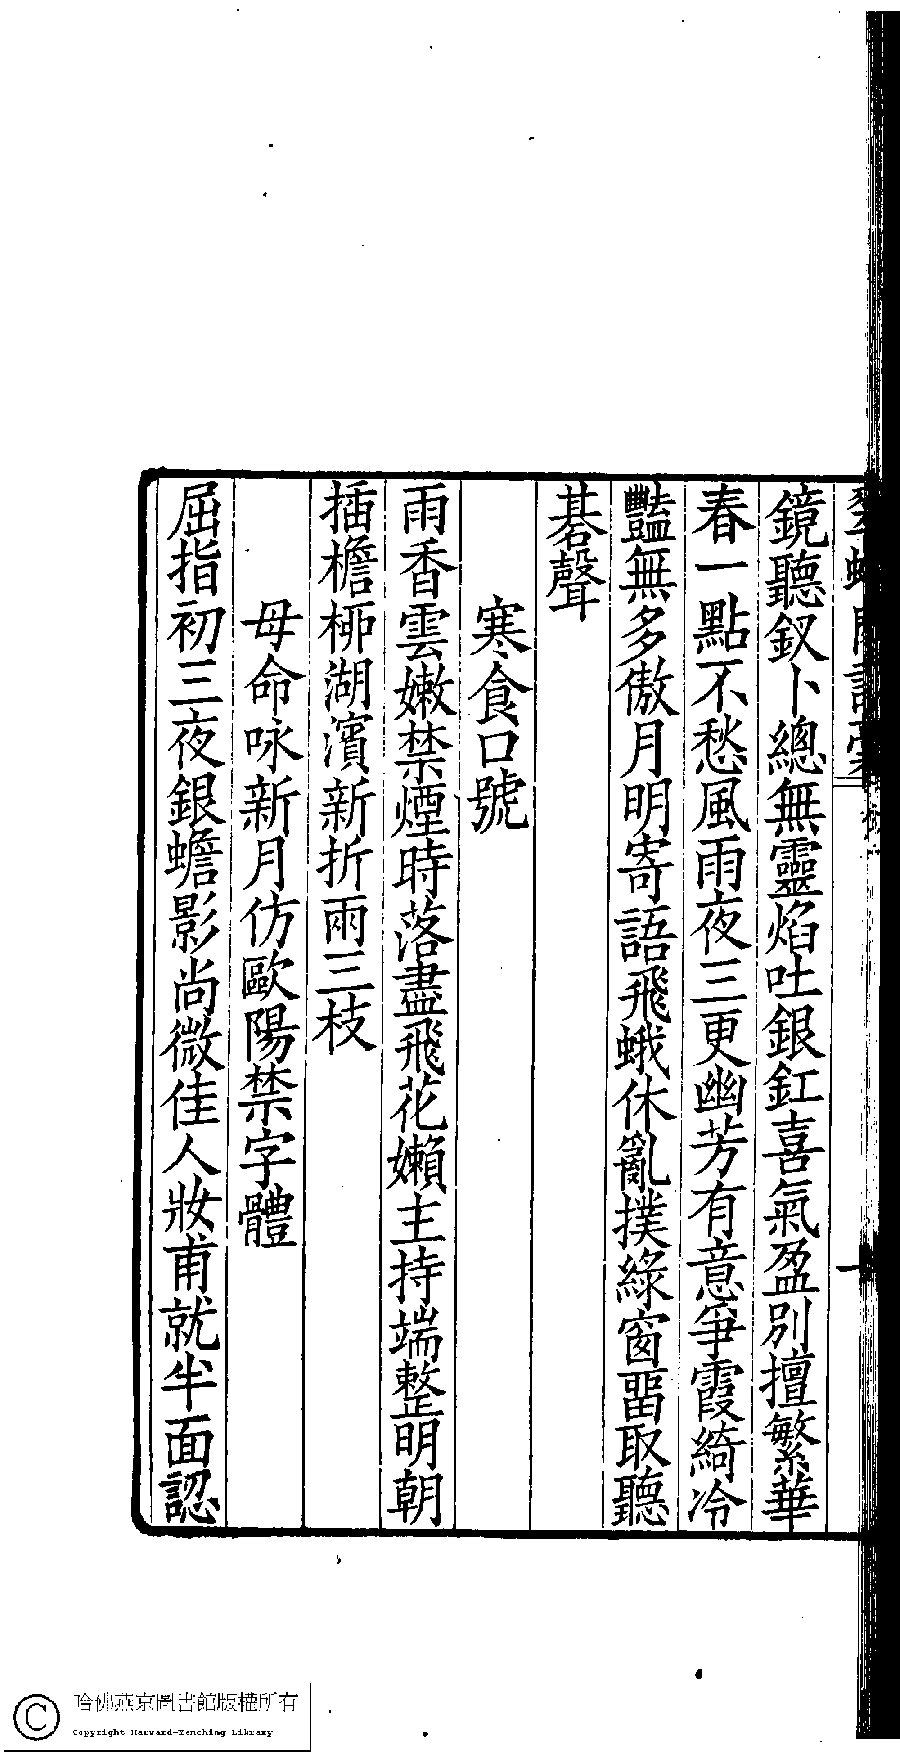 鏡聽釵卜總無靈焰吐銀釭喜氣盈別擅繁華
春一點不愁風雨夜三更幽芳有意爭霞綺冷
豔無多傲月明寄語飛蛾休亂撲綠窗畱取聽
碁聲
寒食口號
雨香雲嫩禁煙時落盡飛花嬾主持端整明朝
插檐桺湖濱新折兩三枝
母命咏新月仿歐陽禁字體
屈指初三夜銀蟾影尚微佳人妝甫就半面認
哈佛燕京圖書館版權所有
Copyright Harvard-Yenching Library